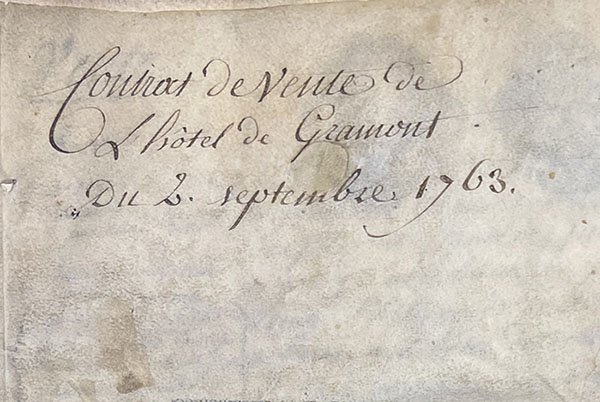 Contrat de Vente de
L'hôtel de Gramont.
Du 2. septembre 1763.